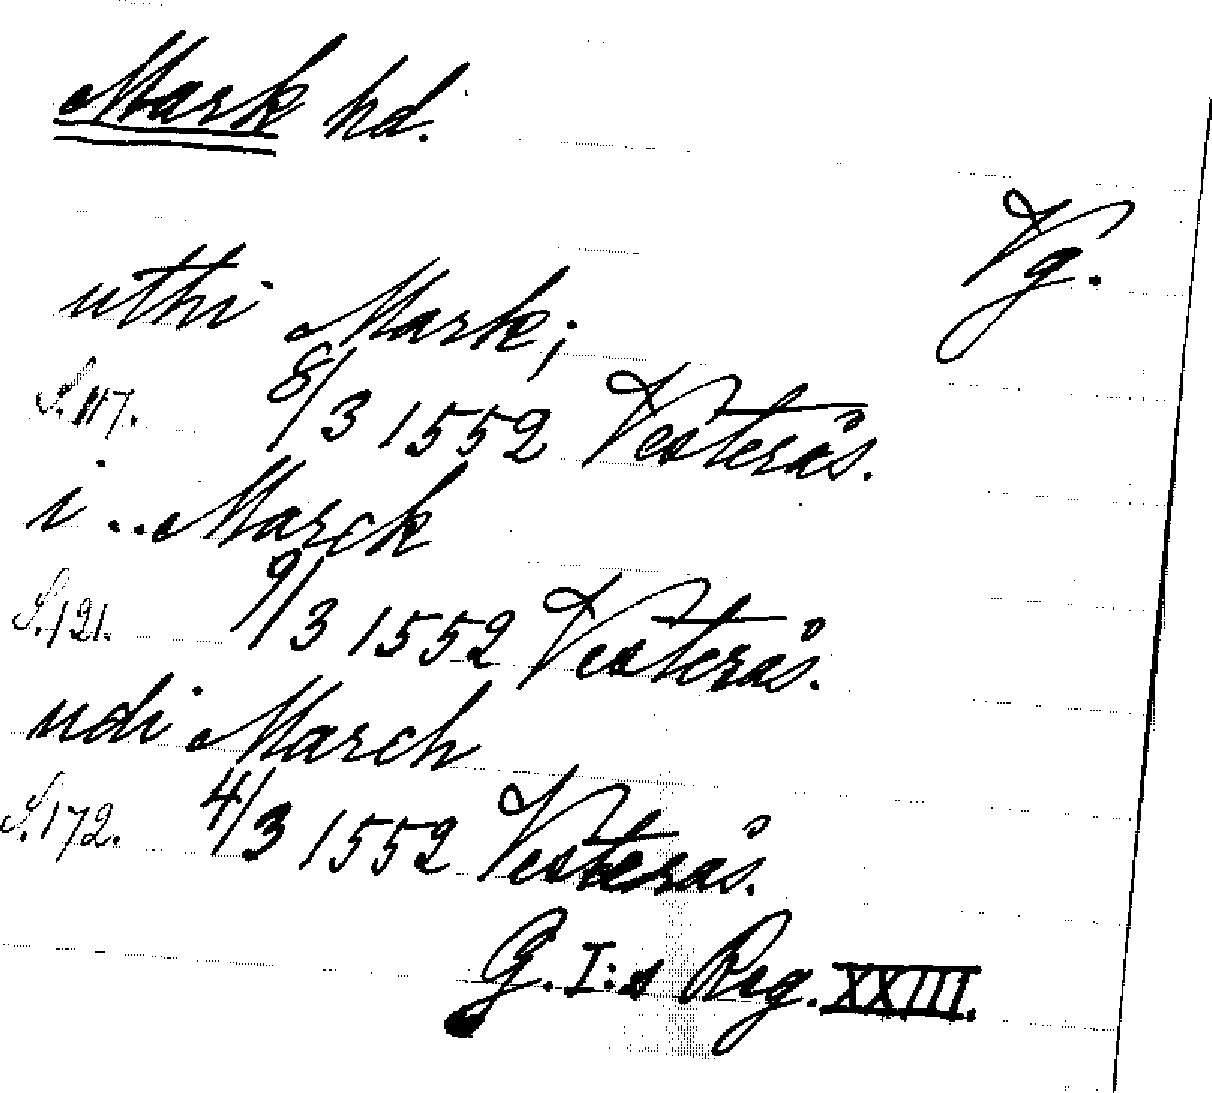 Mark hd.
Vg.
uthi Mark;
S. 117. 8/3 1552 Vesterås.
i .. Marck
S. 121. 9/3 1552 Vesterås.
udi March
S. 172. 4/3 1552 Vesterås.
G. I:s Reg. XXIII.